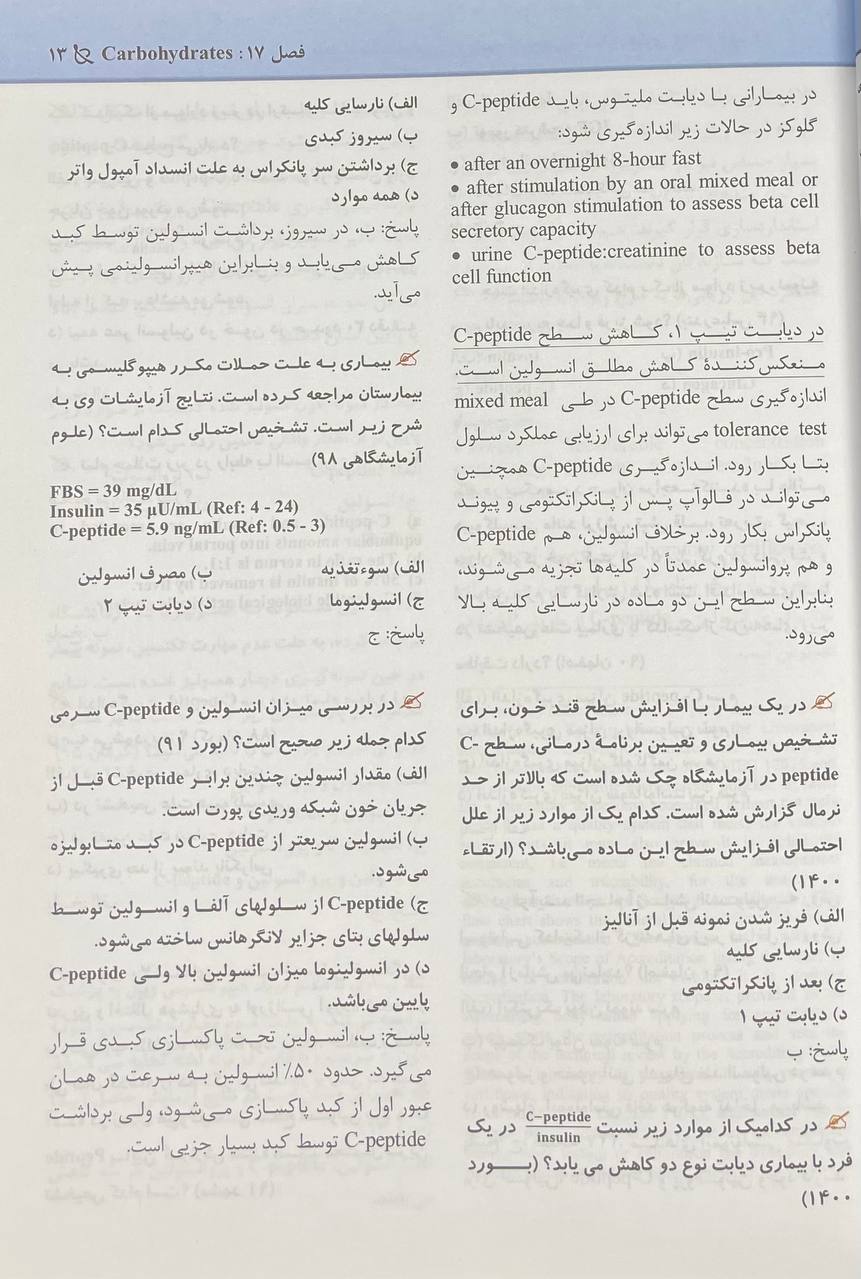 فصل ۱۷ : Carbohydrates ۱۳
در بیمارانی با دیابت ملیتوس، باید C-peptide و
گلوکز در حالات زیر اندازه‌گیری شود:
• after an overnight 8-hour fast
• after stimulation by an oral mixed meal or
after glucagon stimulation to assess beta cell
secretory capacity
• urine C-peptide:creatinine to assess beta
cell function
در دیابت تیپ ۱، کاهش سطح C-peptide
منعکس کنندهٔ کاهش مطلق انسولین است.
اندازه‌گیری سطح C-peptide در طی mixed meal
tolerance test می‌تواند برای ارزیابی عملکرد سلول
بتا بکار رود. اندازه‌گیری C-peptide همچنین
می‌تواند در فالوآپ پس از پانکراتکتومی و پیوند
پانکراس بکار رود. برخلاف انسولین، هم C-peptide
و هم پروانسولین عمدتاً در کلیه‌ها تجزیه می‌شوند،
بنابراین سطح این دو ماده در نارسایی کلیه بالا
می‌رود.
در یک بیمار با افزایش سطح قند خون، برای
تشخیص بیماری و تعیین برنامهٔ درمانی، سطح C-
peptide در آزمایشگاه چک شده است که بالاتر از حد
نرمال گزارش شده است. کدام یک از موارد زیر از علل
احتمالی افزایش سطح این ماده می‌باشد؟ (ارتقاء
۱۴۰۰)
الف) فریز شدن نمونه قبل از آنالیز
ب) نارسایی کلیه
ج) بعد از پانکراتکتومی
د) دیابت تیپ ۱
پاسخ: ب
در کدامیک از موارد زیر نسبت C-peptide/insulin در یک
فرد با بیماری دیابت نوع دو کاهش می یابد؟ (بورد
۱۴۰۰)
الف) نارسایی کلیه
ب) سیروز کبدی
ج) برداشتن سر پانکراس به علت انسداد آمپول واتر
د) همه موارد
پاسخ: ب، در سیروز، برداشت انسولین توسط کبد
کاهش می‌یابد و بنابراین هیپرانسولینمی پیش
می‌آید.
بیماری به علت حملات مکرر هیپوگلیسمی به
بیمارستان مراجعه کرده است. نتایج آزمایشات وی به
شرح زیر است. تشخیص احتمالی کدام است؟ (علوم
آزمایشگاهی ۹۸)
FBS = 39 mg/dL
Insulin = 35 µU/mL (Ref: 4 - 24)
C-peptide = 5.9 ng/mL (Ref: 0.5 - 3)
الف) سوءتغذیه ب) مصرف انسولین
ج) انسولینوما د) دیابت تیپ ۲
پاسخ: ج
در بررسی میزان انسولین و C-peptide سرمی
کدام جمله زیر صحیح است؟ (بورد ۹۱)
الف) مقدار انسولین چندین برابر C-peptide قبل از
جریان خون شبکه وریدی پورت است.
ب) انسولین سریعتر از C-peptide در کبد متابولیزه
می‌شود.
ج) C-peptide از سلولهای آلفا و انسولین توسط
سلولهای بتای جزایر لانگرهانس ساخته می‌شود.
د) در انسولینوما میزان انسولین بالا ولی C-peptide
پایین می‌باشد.
پاسخ: ب، انسولین تحت پاکسازی کبدی قرار
می گیرد. حدود ۵۰٪ انسولین به سرعت در همان
عبور اول از کبد پاکسازی می‌شود، ولی برداشت
C-peptide توسط کبد بسیار جزیی است.